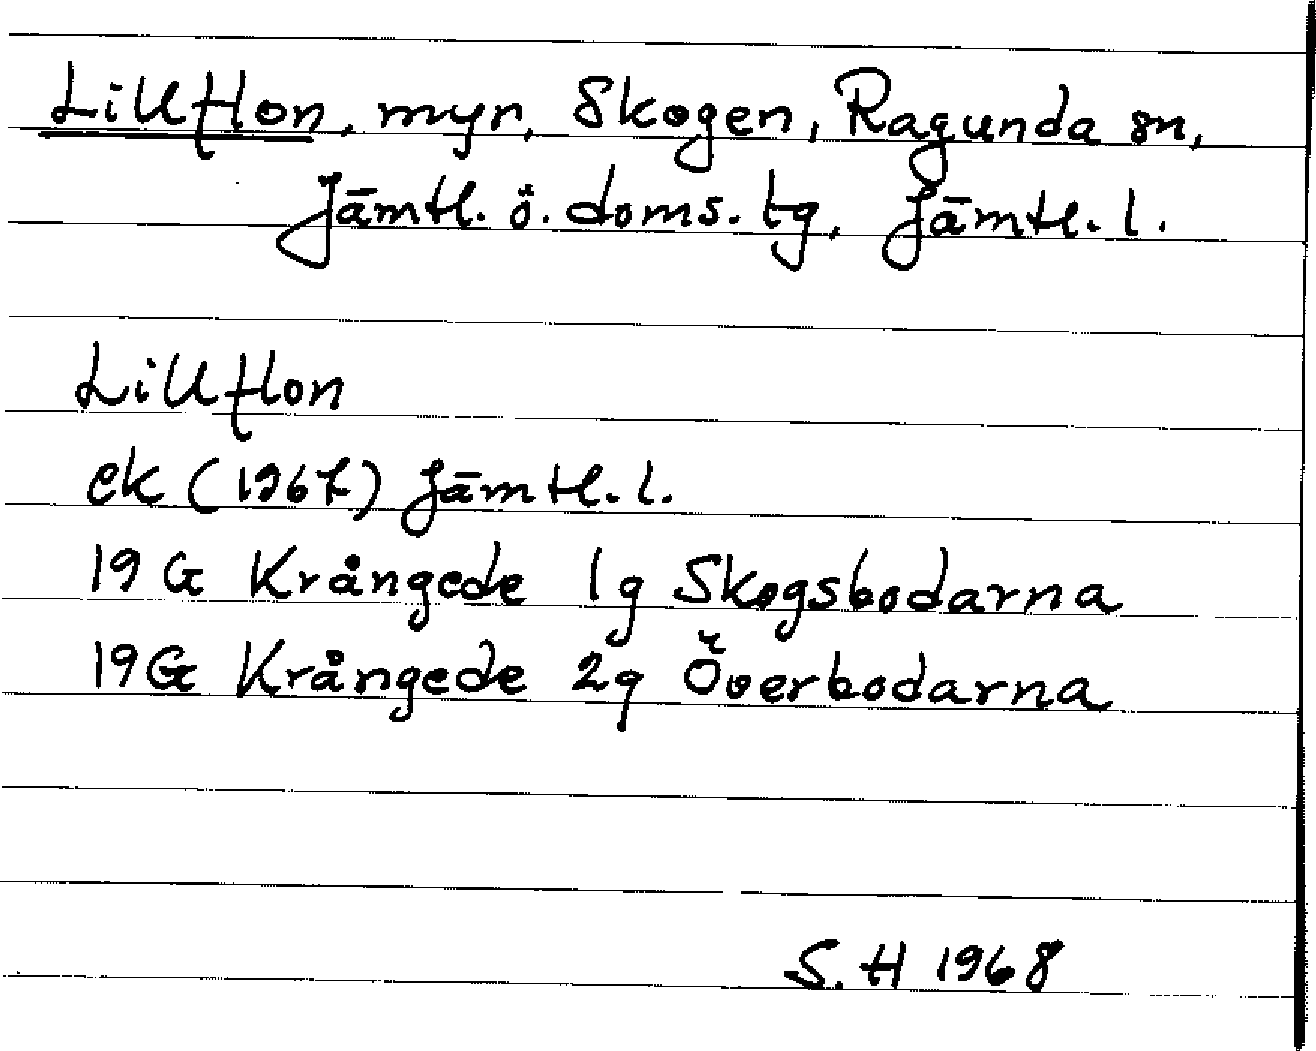 Lillflon, myr, Skogen, Ragunda sn,
Jämtl. ö. doms. tg, Jämtl. l.
Lillflon
ek (1967) Jämtl. l.
19 G Krångede 1g Skogsbodarna
19G Krångede 2g Överbodarna
S. H 1968